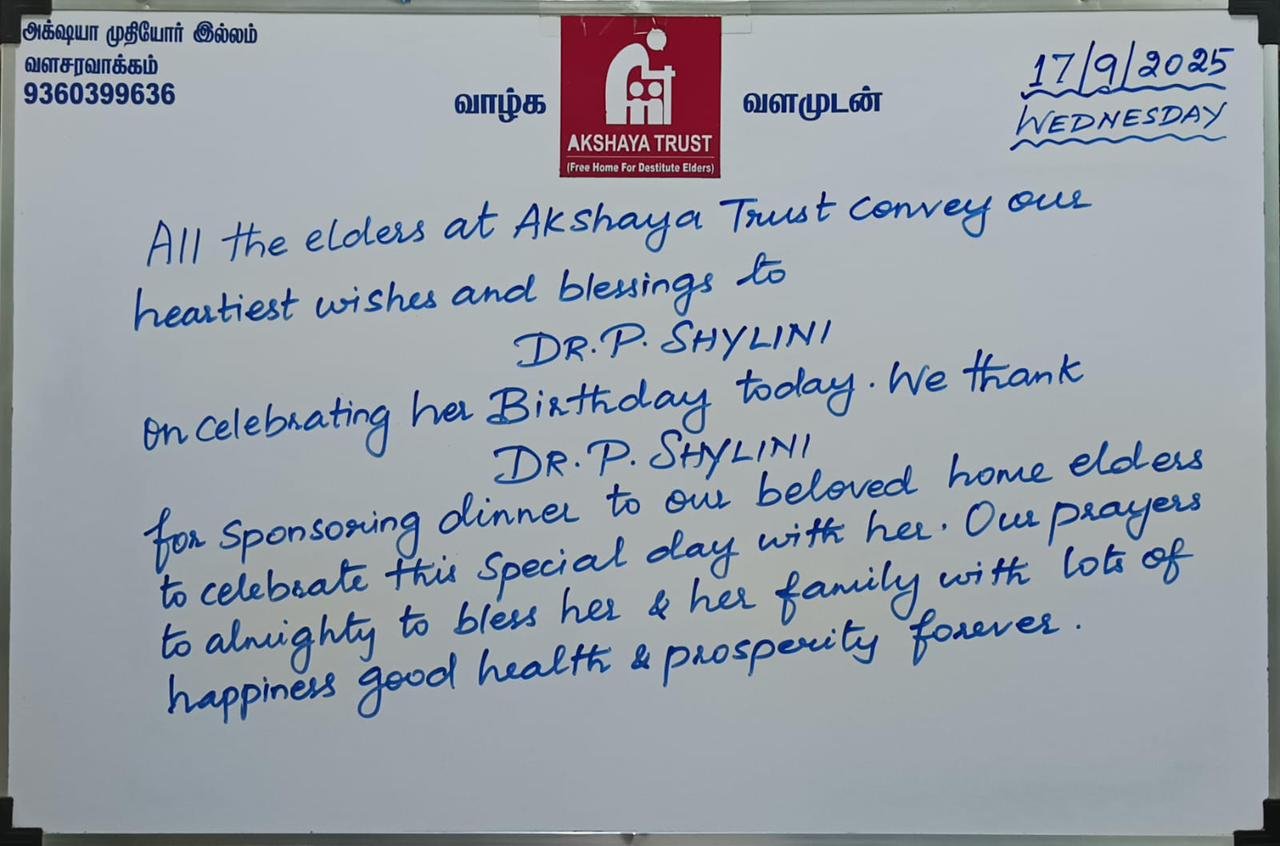 அக்ஷயா முதியோர் இல்லம்
வளசரவாக்கம்
9360399636
வாழ்க
AKSHAYA TRUST
(Free Home For Destitute Elders)
வளமுடன்
17/9/2025
WEDNESDAY
All the elders at Akshaya Trust convey our
heartiest wishes and blessings to
DR. P. SHYLINI
on celebrating her Birthday today. We thank
DR. P. SHYLINI
for sponsoring dinner to our beloved home elders
to celebrate this special day with her. Our prayers
to almighty to bless her & her family with lots of
happiness good health & prosperity forever.